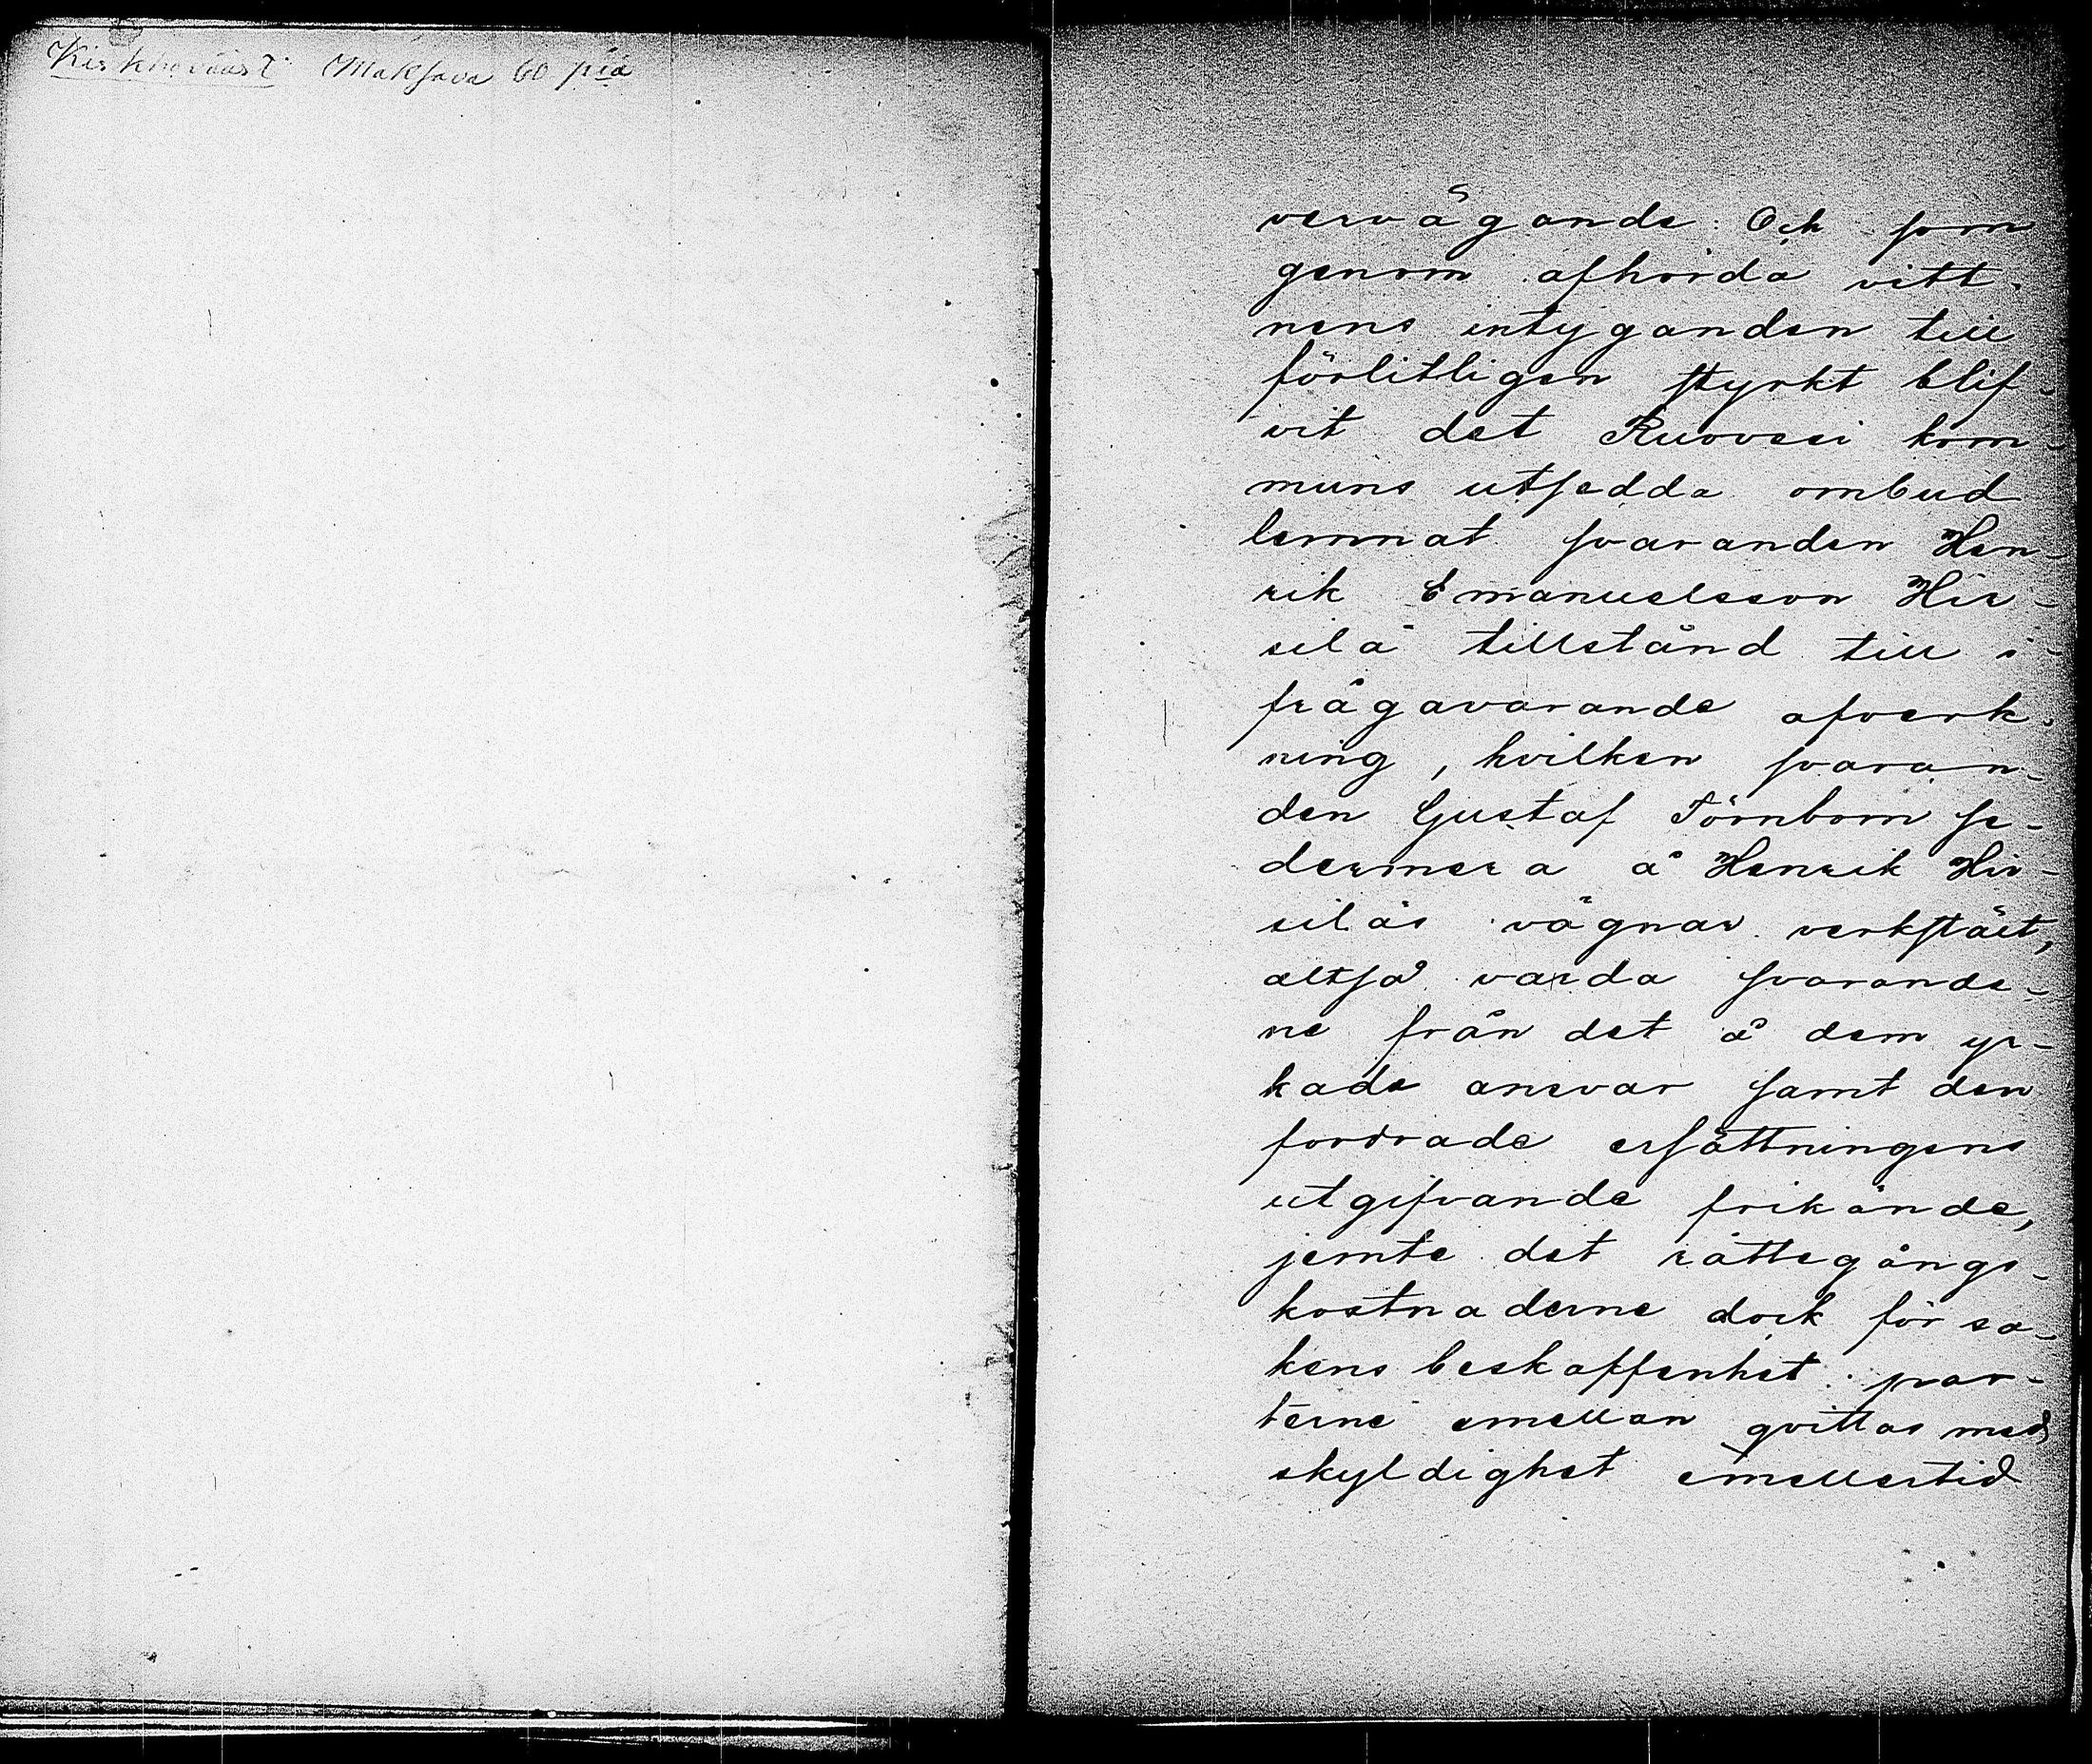 Maksava 60 piä
vervägande: Och som
genom afhörda vitt-
nens intyganden till
förlitligen styrkt blif-
vit det Ruovesi kom-
muns utsedda ombud
lemnat svaranden Hen-
rik Emanuelsson Hir-
silä tillstånd till i-
frågavarande afverk-
ning, hvilken svaran-
den Gustaf Törnbom se-
dermera å Henrik Hir-
siläs vägnar verkstält,
altså varda svarande-
ne från det å dem yr-
kade ansvar samt den
fordrade ersättningens
utgifvande frikände,
jemte det rättegångs-
kostnaderne dock för sa-
kens beskaffenhet par-
terne emellan qvittas med
skyldighet emellertid